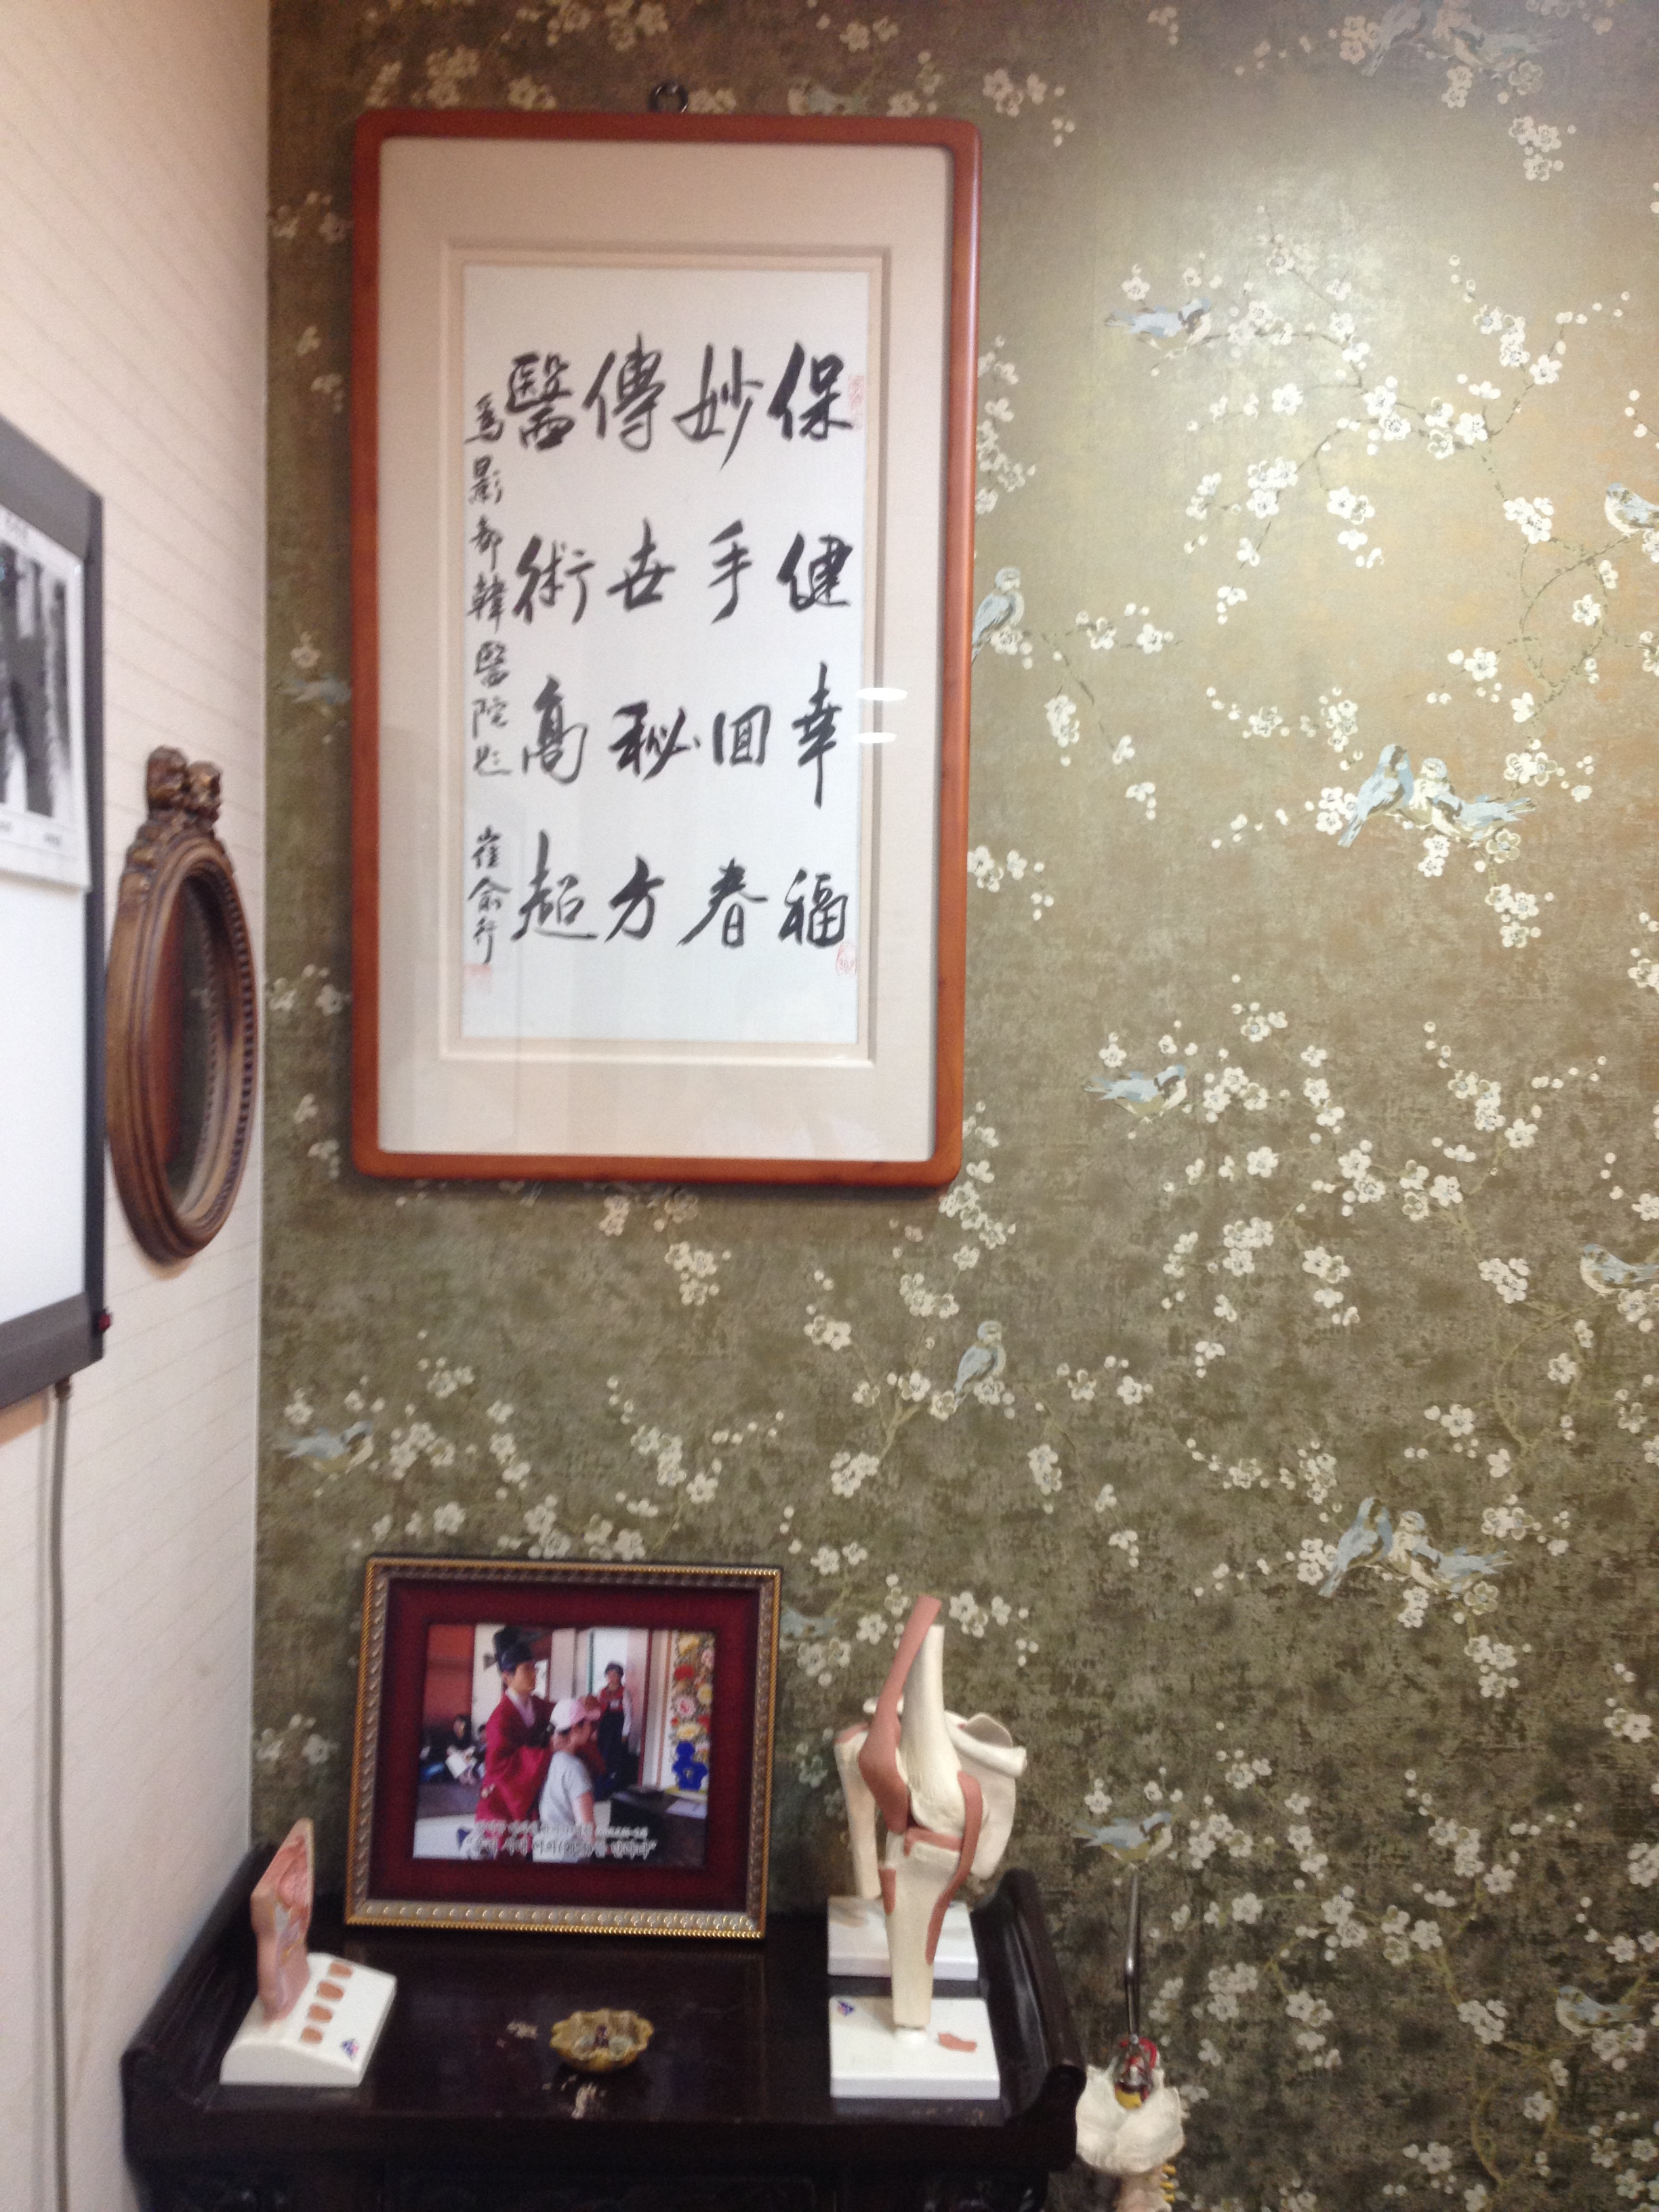 保健幸福
妙手回春
傳世秘方
醫術高超
為影都韓醫院題 崔俞行